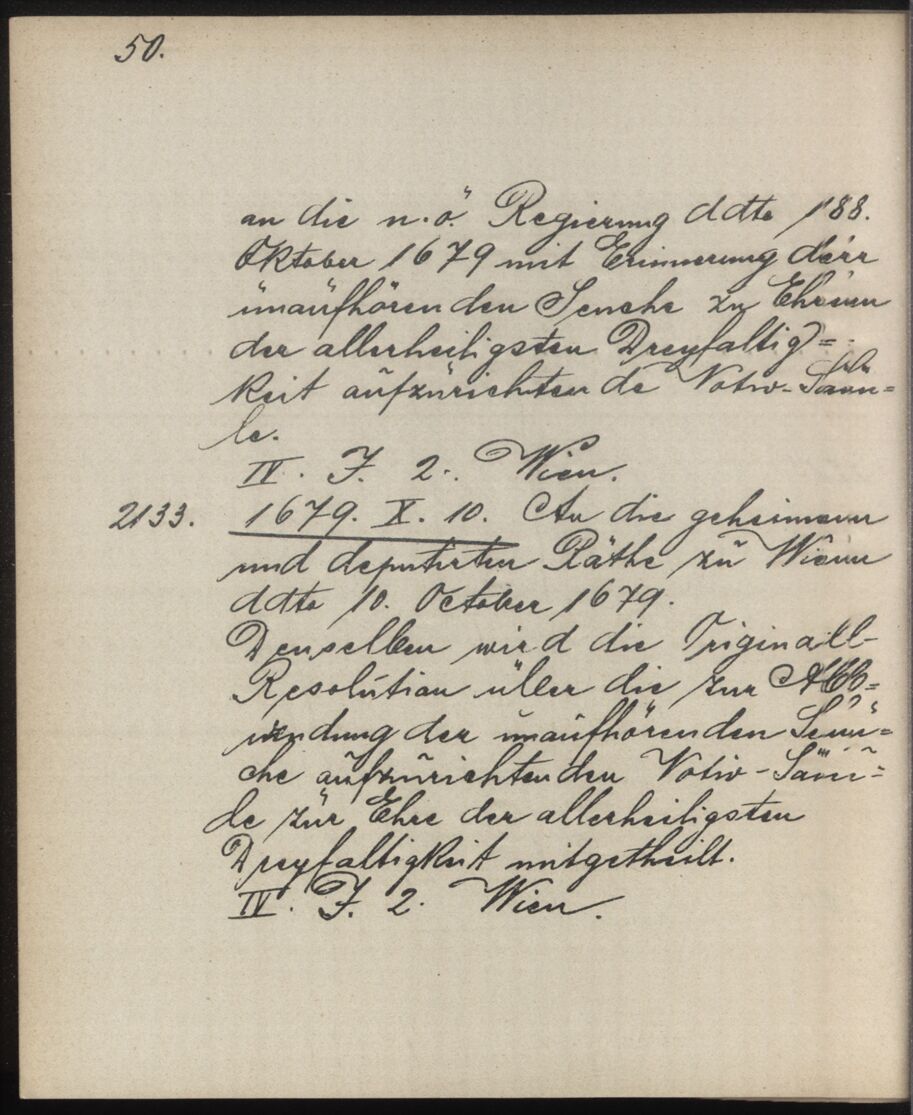 50.
an die n.ö. Regierung ddto 188.
Oktober 1679 mit Erinnerung derr
unaufhörenden Seuche zu Ehren
der allerheiligsten Dreyfaltig=
keit aufzurichtende Votiv-Säu=
le.
IV. F. 2. Wien.
2133. 1679. X. 10. An die geheimen
und deputirten Räthe zu Wienn
ddto 10. October 1679.
Denselben wird die Originall-
Resolution über die zur Abb=
wendung der unaufhörenden Seu=
che aufzurichtenden Votiv-Säu=
le zur Ehre der allerheiligsten
Dreyfaltigkeit mitgetheilt.
IV. F. 2. Wien.